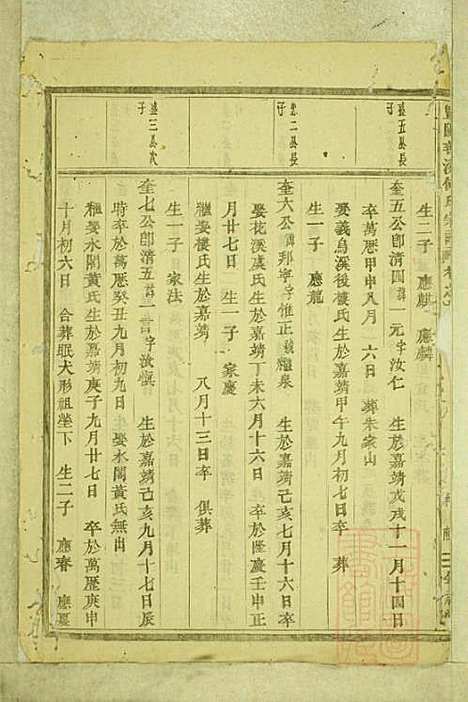 生二子 應麒 應麟
盛五公長子
奎五公即清四諱一元字汝仁 生於嘉靖戊戌十一月十四日
卒萬歷甲申八月 六日 葬朱家山
娶義烏溪後樓氏生於嘉靖甲午九月初七日卒 葬
生一子 應龍
二公長子
奎六公諱邦寧字惟正號繼泉 生於嘉靖己亥七月十六日卒
娶花溪虞氏生於嘉靖丁未六月十六日 卒於隆慶壬申正
月廿七日 生一子 家慶
繼娶樓氏生於嘉靖 八月十三日卒 俱葬
生一子 家法
盛三公次子
奎七公即清五諱一言字汝慎 生於嘉靖己亥九月十七日辰
時卒於萬歷癸丑九月初九日 娶水閣黃氏無出
繼娶水閣黃氏生於嘉靖庚子九月廿七日 卒於萬歷庚申
十月初六日 合葬眠犬形祖塋下 生二子 應春 應夏